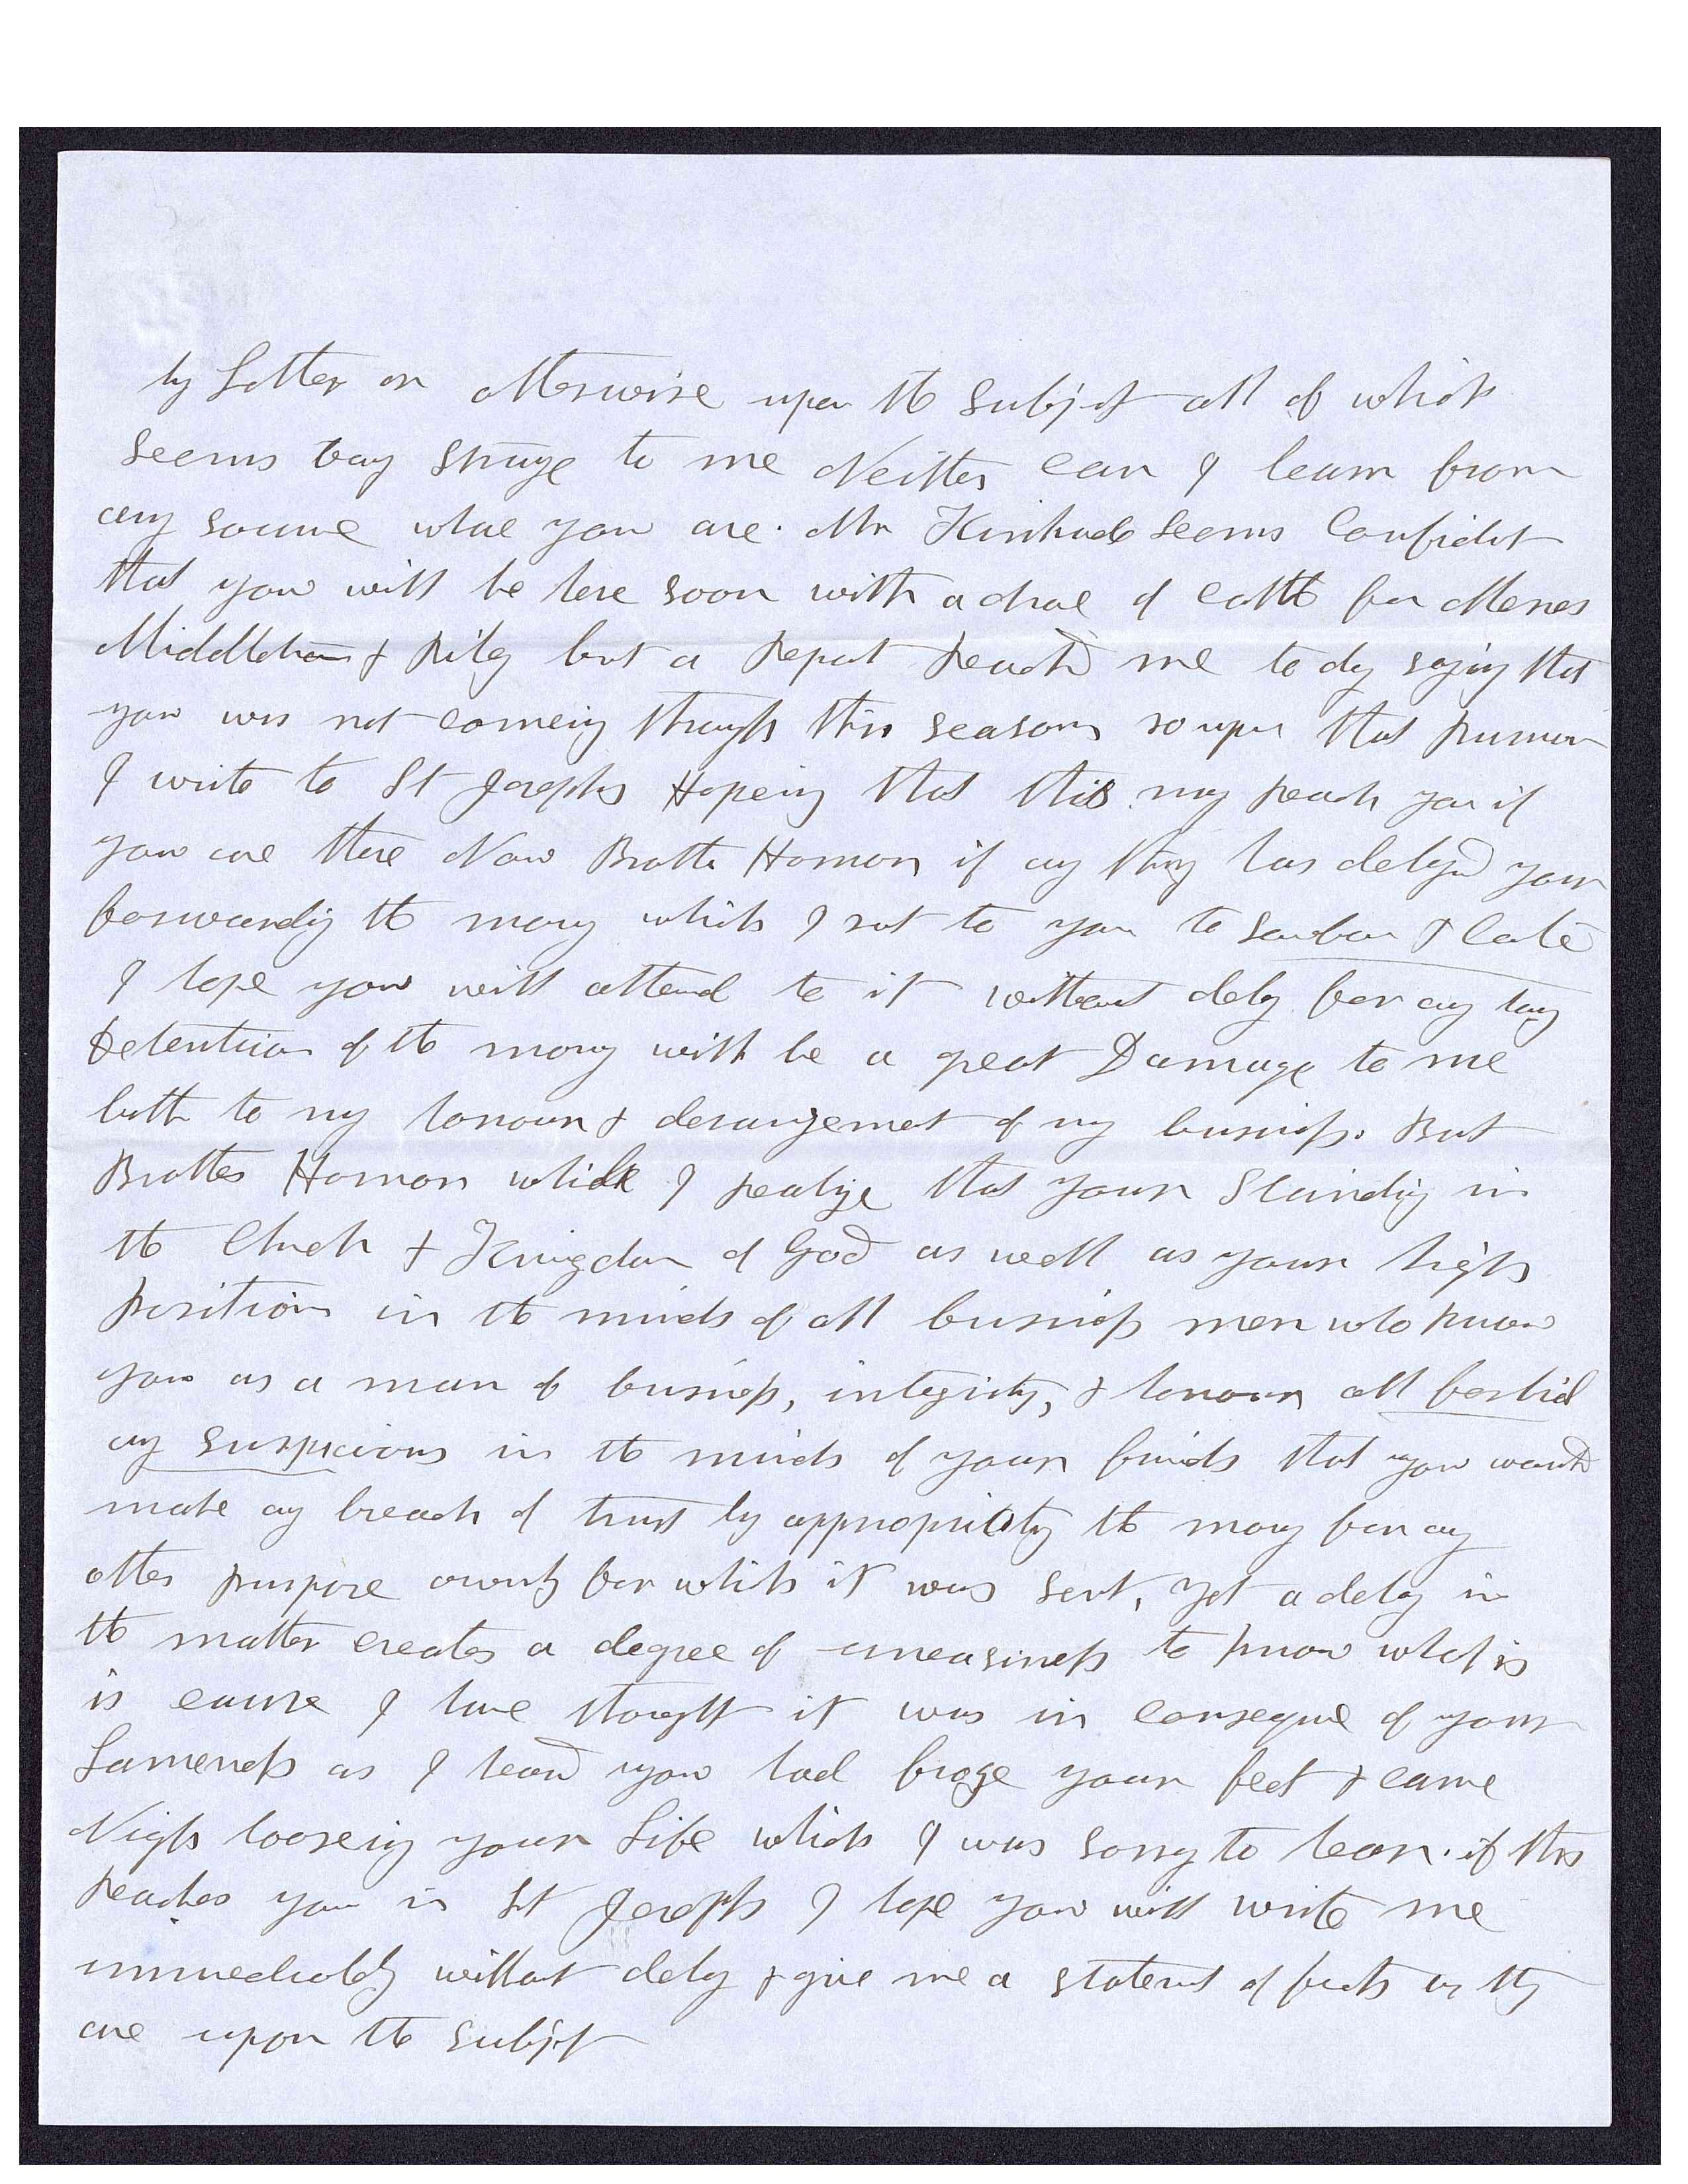 by Letter or otherwise upon the Subject all of which
Seems vary Strange to me Neither can I learn from
any source whare you are. Mr Kinkade Seems Confident
that you will be here soon with a drove of cattle for Messrs
Middleton & Riley but a report reachd me to day saying that
you was not comeing through this season so upon that rumor
I write to St Josephs Hopeing that this may reach you if
you are there Now Brother Homon if any thing has delayd your
forwarding the money which I sent to you to
I hope you will attend to it without delay for any long
detention of the money will be a great Damage to me
both to my honour & derangement of my business. But
Brother Homon while I realize that your Standing in
the Church & Kingdom of God as well as your high
position in the minds of all business men who know
you as a man of business, integrity, & honour all forbid
any suspicions in the minds of your friends that you would
make any breach of trust by appropriating the money for any
other purpose for which it was sent, yet a delay in
the matter creates a degree of uneasiness to know what is
is cause I have thought it was in consequence of your
Lameness as I heard you had froze your feet & came
Nigh looseing your Life which I was sorry to hear. if this
reaches you in St Josephs I hope you will write me
immediately without delay & give me a statement of facts as they
are upon the subject